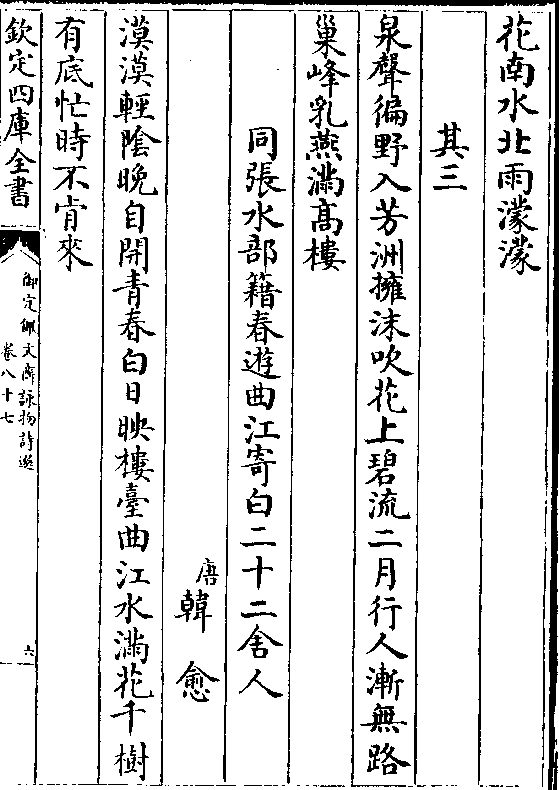 花南水北雨濛濛
其三
泉聲徧野入芳洲擁沫吹花上碧流二月行人漸無路
巢峰乳燕滿高樓
同張水部籍春遊曲江寄白二十二舍人
唐
韓愈
漠漠輕陰晚自開青春白日映樓臺曲江水滿花千樹
有底忙時不肯來
欽定四庫全書
御定佩文齋詠物詩選
卷八十七
六